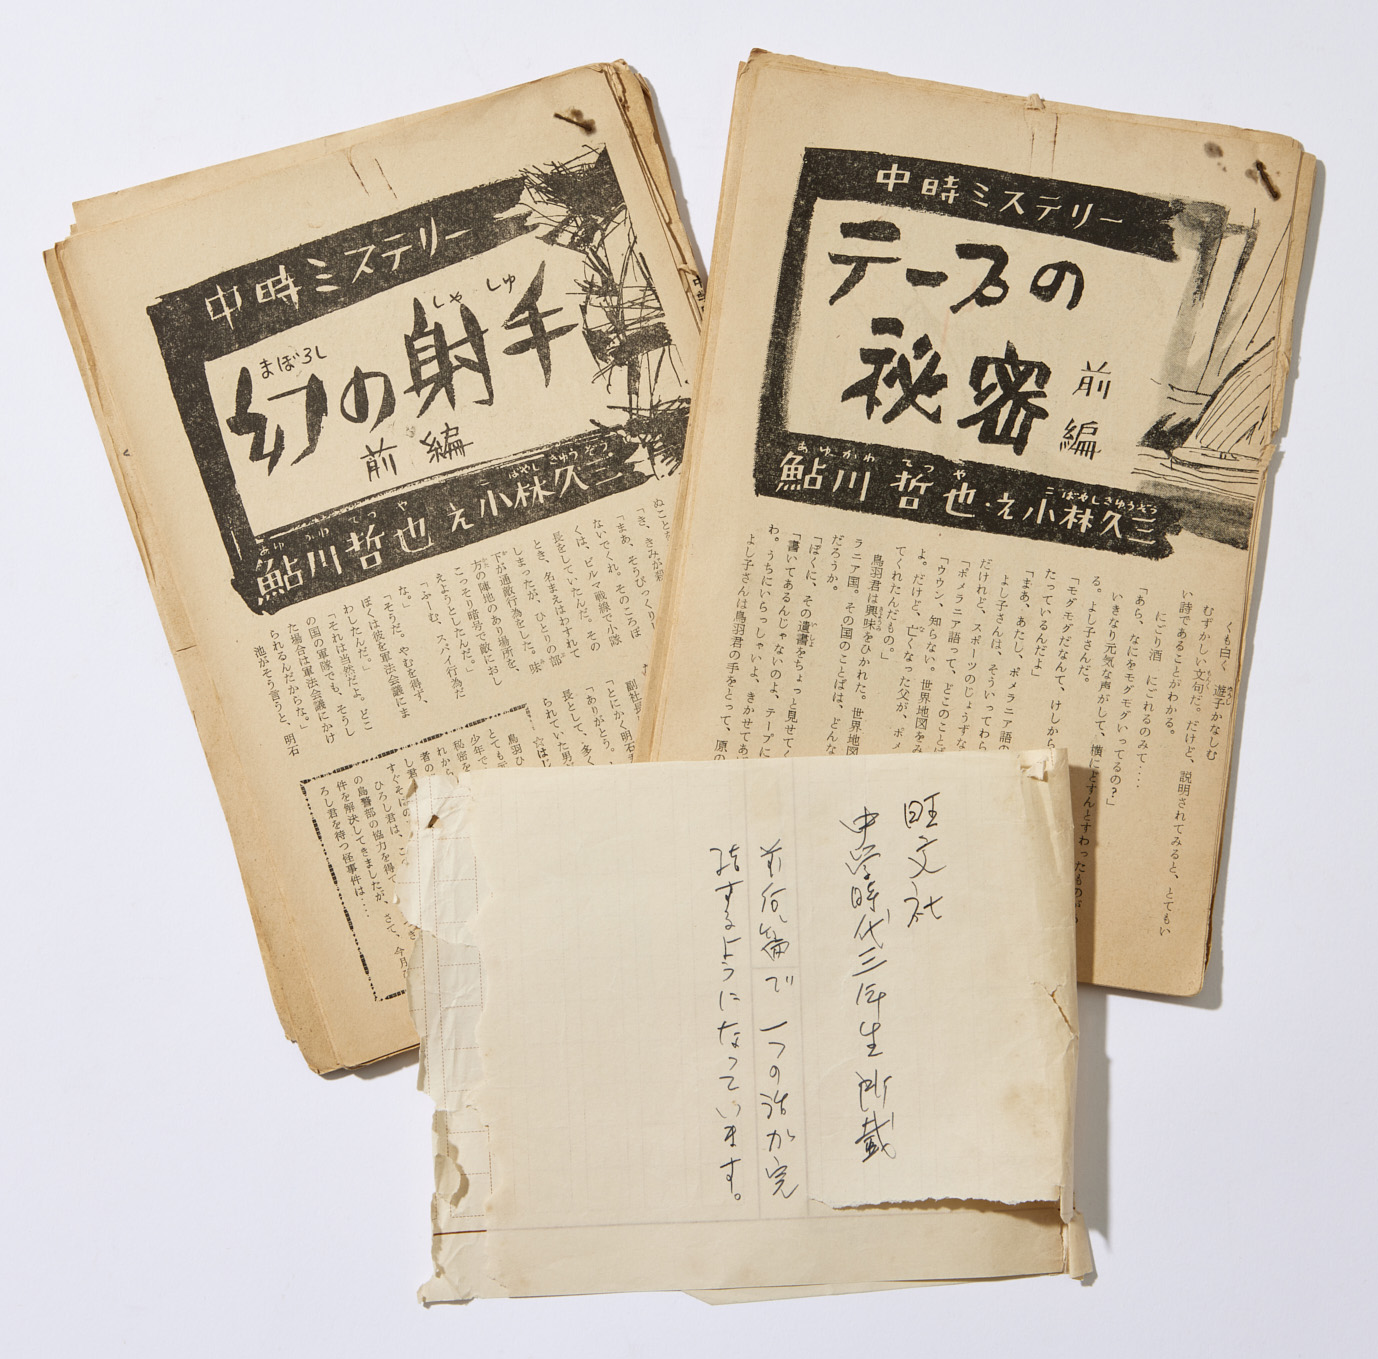 中時ミステリー
まぼろし
しゃ しゅ
幻の射手
前編
あゆ かわ てつ や
こばやし きゅう ぞう
鮎川哲也 え 小林久三
「き、きみが殺
「まあ、そうびっくりし
ないでくれ。そのころぼ
くは、ビルマ戦線で小隊
長をしていたんだ。その
とき、名まえはわすれて
しまったが、ひとりの部
下が通敵行為をした。味
方の陣地のあり場所を、
こっそり暗号で敵におし
えようとしたんだ。」
「ふーむ、スパイ行為だ
な。」
「そうだ。やむを得ず、
ぼくは彼を軍法会議にま
わしたんだ。」
「それは当然だよ。どこ
の国の軍隊でも、そうし
た場合は軍法会議にかけ
られるんだからな。」
池がそう言うと、明石
副社長
「とにかく明石
「ありがとう。
長として、多く
られていた男
ひろし君は、
の島警部の協力を得て
件を解決してきましたが、さて、今月
ろし君を待つ怪事件は‥‥
中時ミステリー
テープの
秘密
前編
あゆかわ てつ や
こばやしきゅうぞう
鮎川哲也・え 小林久三
くも白く 遊子かなしむ
むずかしい文句だ。だけど、説明されてみると、とてもい
い詩であることがわかる。
にごり酒 にごれるのみて‥‥
「あら、なにをモグモグいってるの?」
いきなり元気な声がして、横にどすんとすわったものがあ
る。よし子さんだ。
「モグモグだなんて、けしから
たっているんだよ」
「まあ、あたし、ポメラニア語の
よし子さんは、そういってわら
だけれど、スポーツのじょうずな
「ポメラニア語って、どこのことば
「ウウン、知らない。世界地図をみ
よ。だけど、亡くなった父が、ポメ
てくれたんだもの。」
鳥羽君は興味をひかれた。世界地図
ラニア国。その国のことばは、どんな
だろうか。
「ぼくに、その遺書をちょっと見せてく
「書いてあるんじゃないのよ、テープに
わ。うちにいらっしゃいよ、きかせてあげ
よし子さんは鳥羽君の手をとって、原の
旺文社
中学時代三年生所載
前後篇で一つの話が完
結するようになっています。